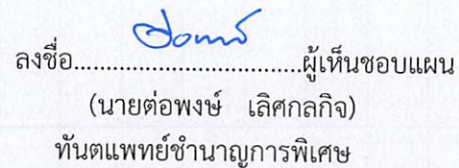 ลงชื่อ..................................ผู้เห็นชอบแผน
(นายต่อพงษ์ เลิศกลกิจ)
ทันตแพทย์ชำนาญการพิเศษ